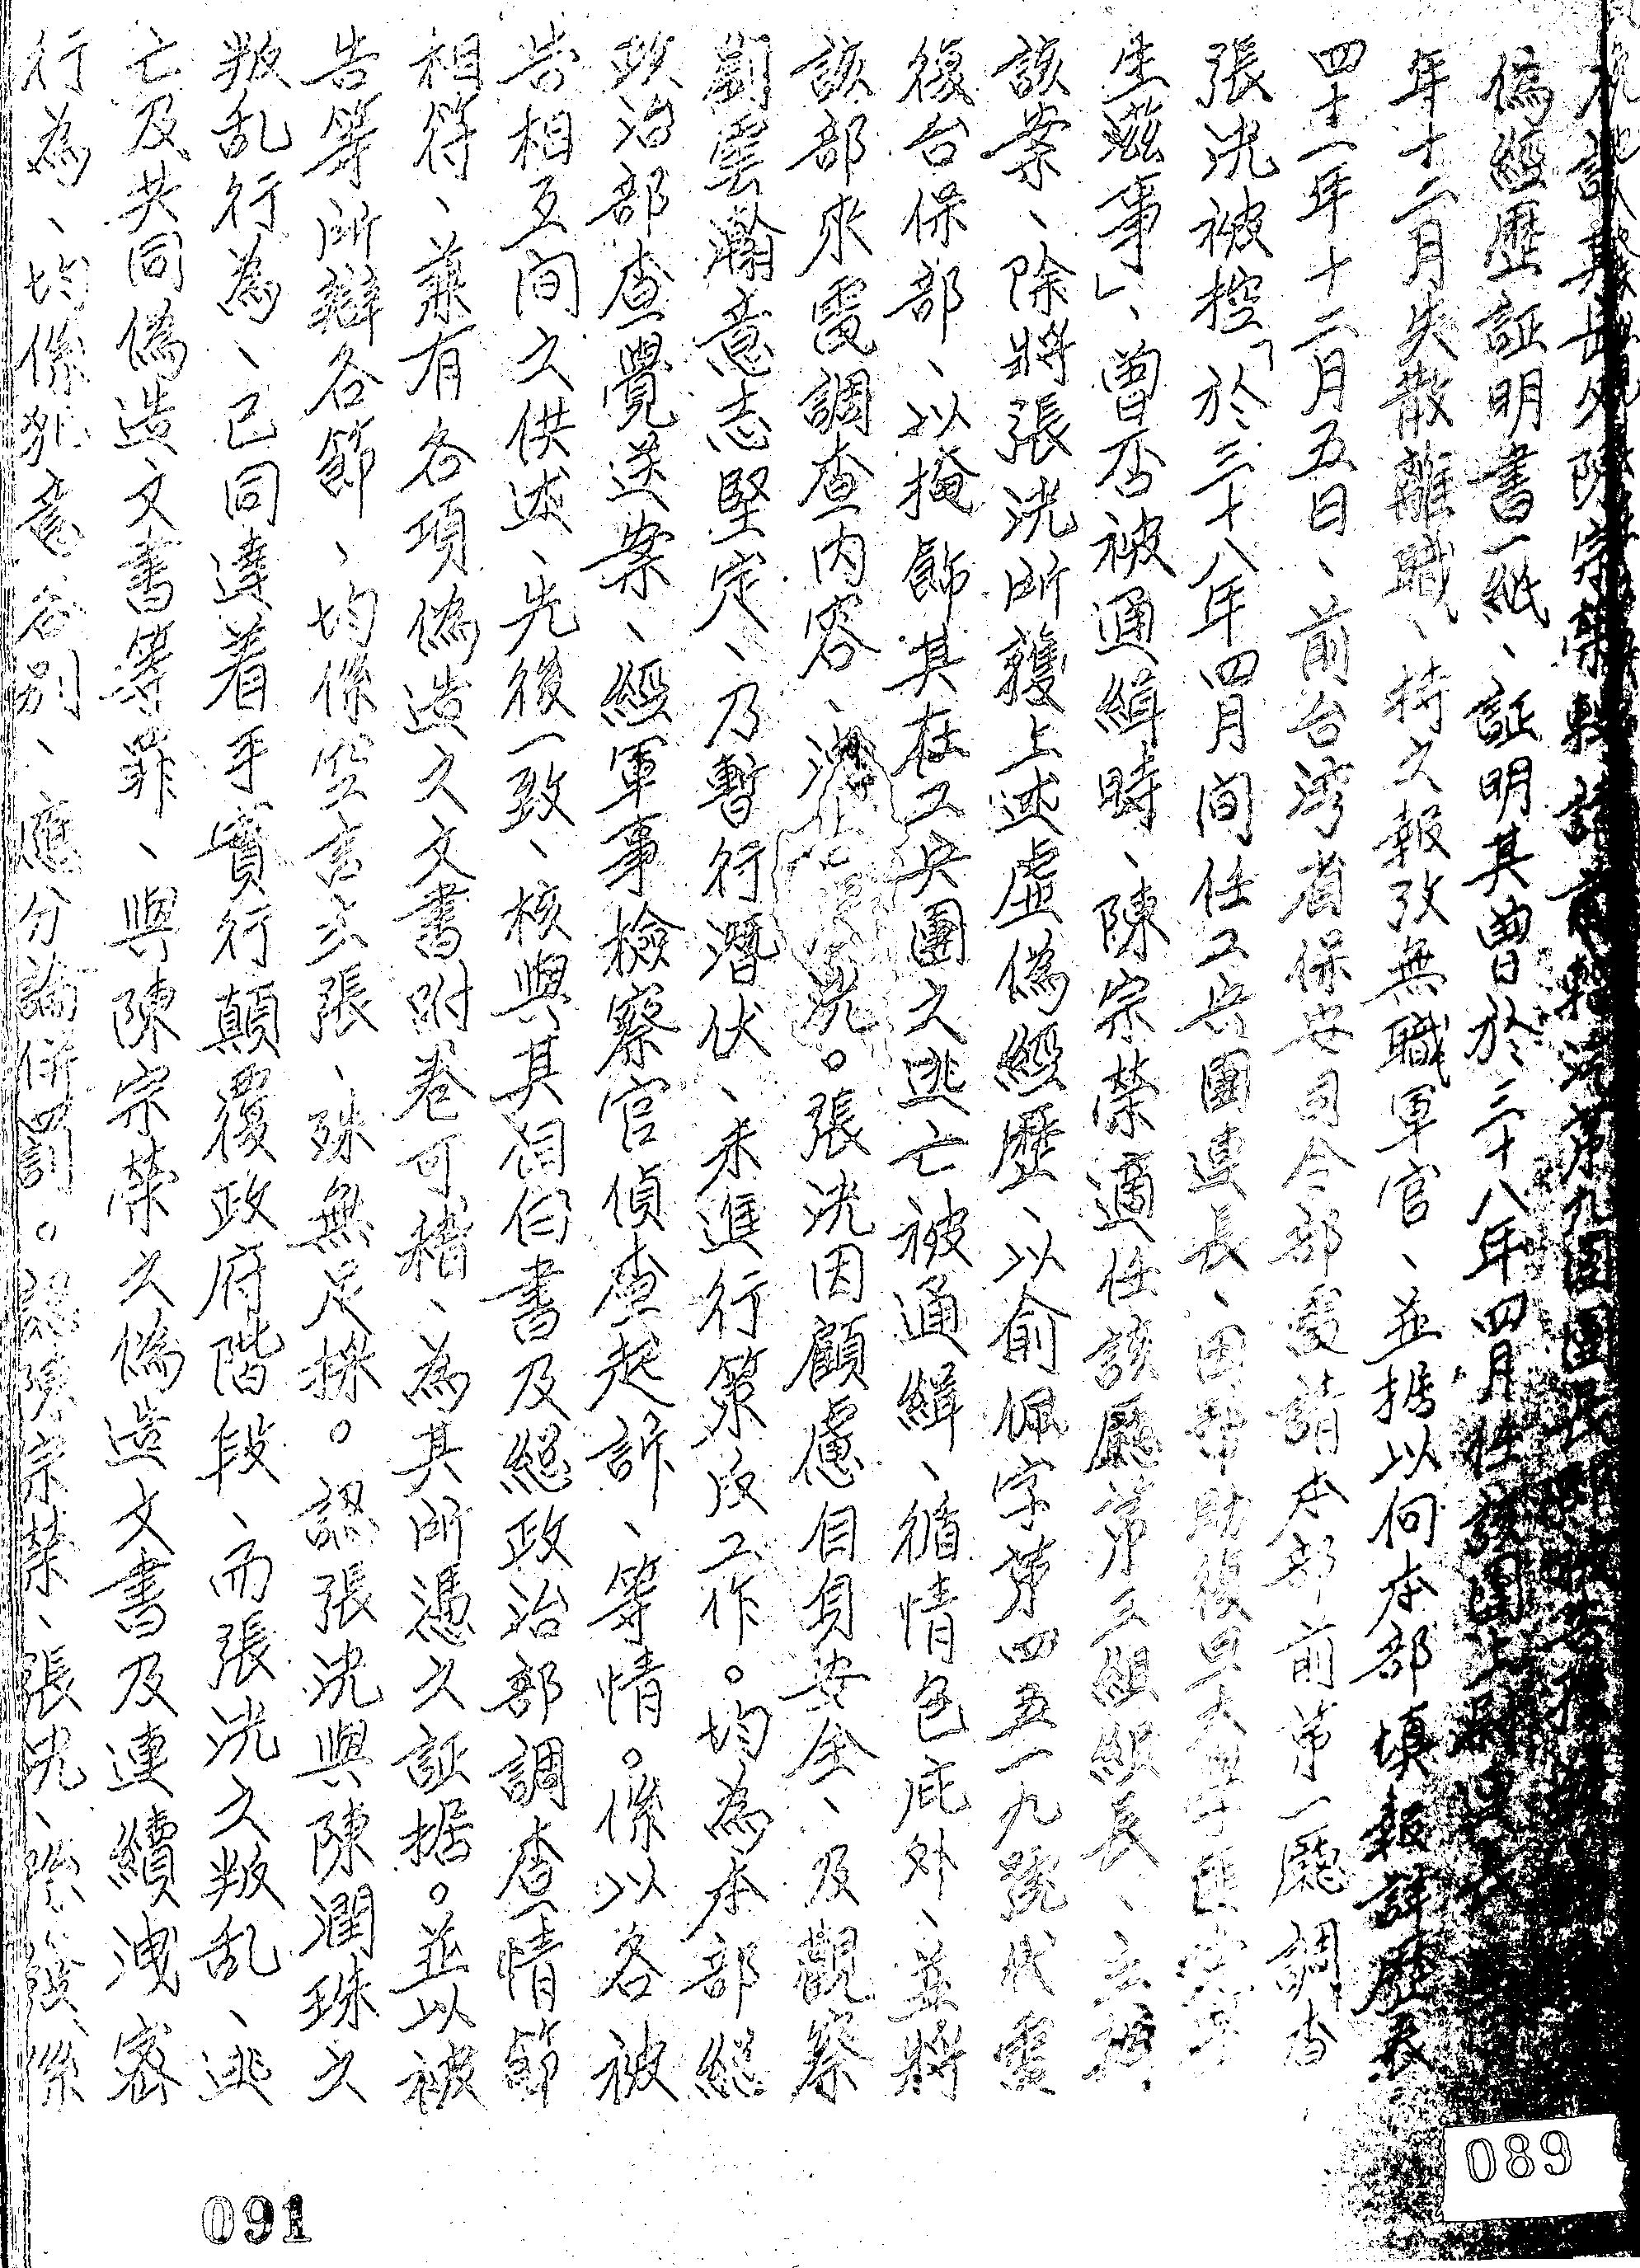 偽經歷証明書一紙、証明其曾於三十八年四月
年十二月失散離職、持之報攷無職軍官、並据以向本部填報詳歷表
四十一年十二月五日、前台湾省保安司令部電請本部前第一廳調查
張洸被控「於三十八年四月间任工兵團連長、因帮助復旦大學
生滋事」、曾否被通緝時、陳宗榮適任該廳第三組組長、
該案、除將張洸所獲上述虛偽經歷、以俞佩字第四五一九號代電
復台保部、以掩飾其在工兵團之逃亡被通緝、循情包庇外、並將
該部來電調查内容、洸。張洸因顧慮自身安全、及觀察
劉雲瀚意志堅定、乃暫行潛伏、未進行策反工作。均為本部總
政治部查覺送案、經軍事檢察官偵查起訴、等情。係以各被
告相互间之供述、先後一致、核與其自白書及總政治部調查情節
相符、兼有各項偽造之文書附卷可稽、為其所憑之証据。並以被
告等所辯各節、均係空言主張、殊無足採。認張洸與陳潤珠之
叛乱行為、已同達着手實行顛覆政府階段、而張洸之叛乱、逃
亡及共同偽造文書等罪、與陳宗榮之偽造文書及連續洩密
行為、均係犯意各別、應分論併罰。認陳宗榮、張洸、係
089
091